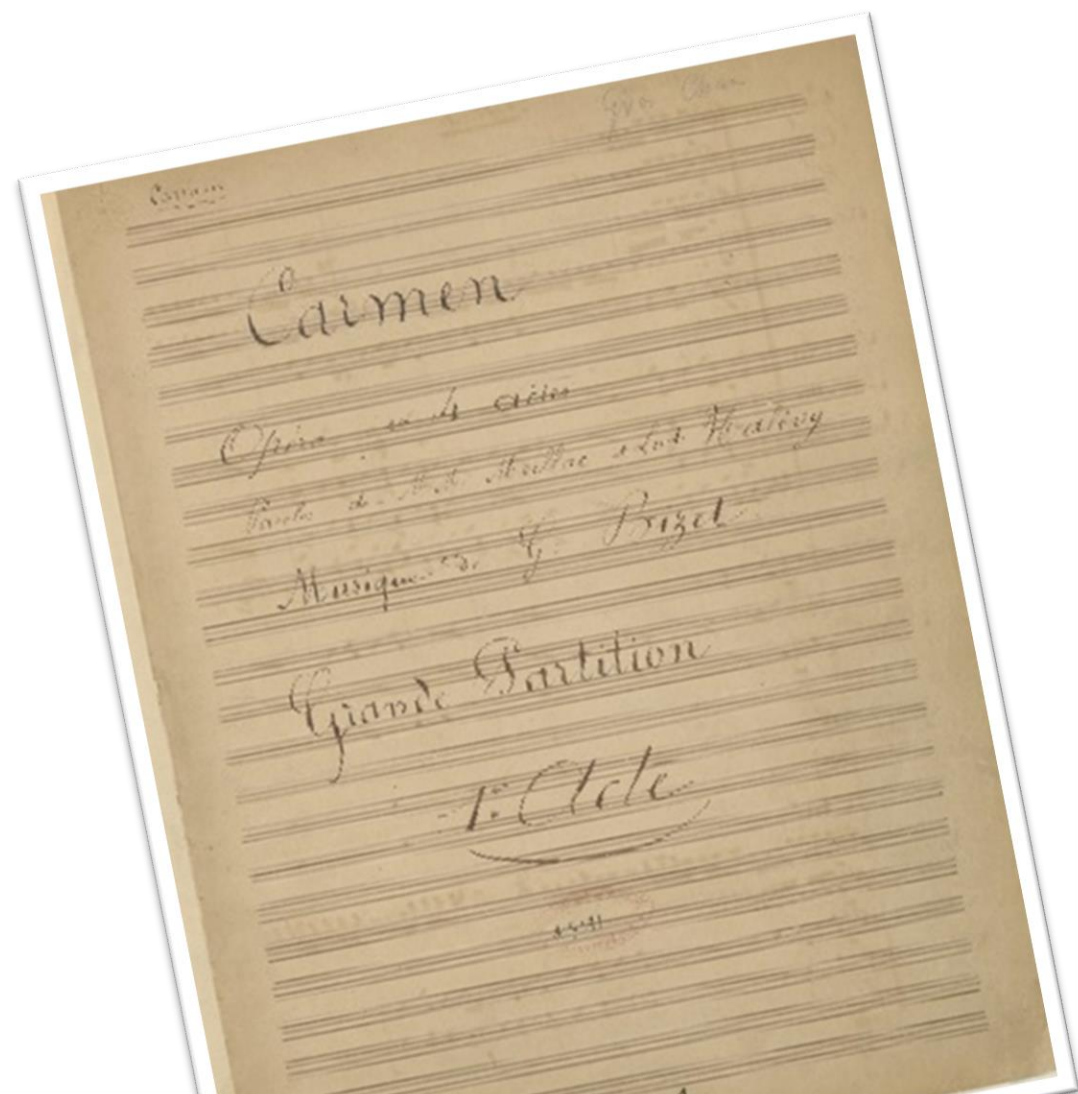 Carmen
Carmen
Opéra en 4 actes
Paroles de M.M. Meilhac & Lud. Halévy
Musique de G. Bizet
Grande Partition
1er Acte